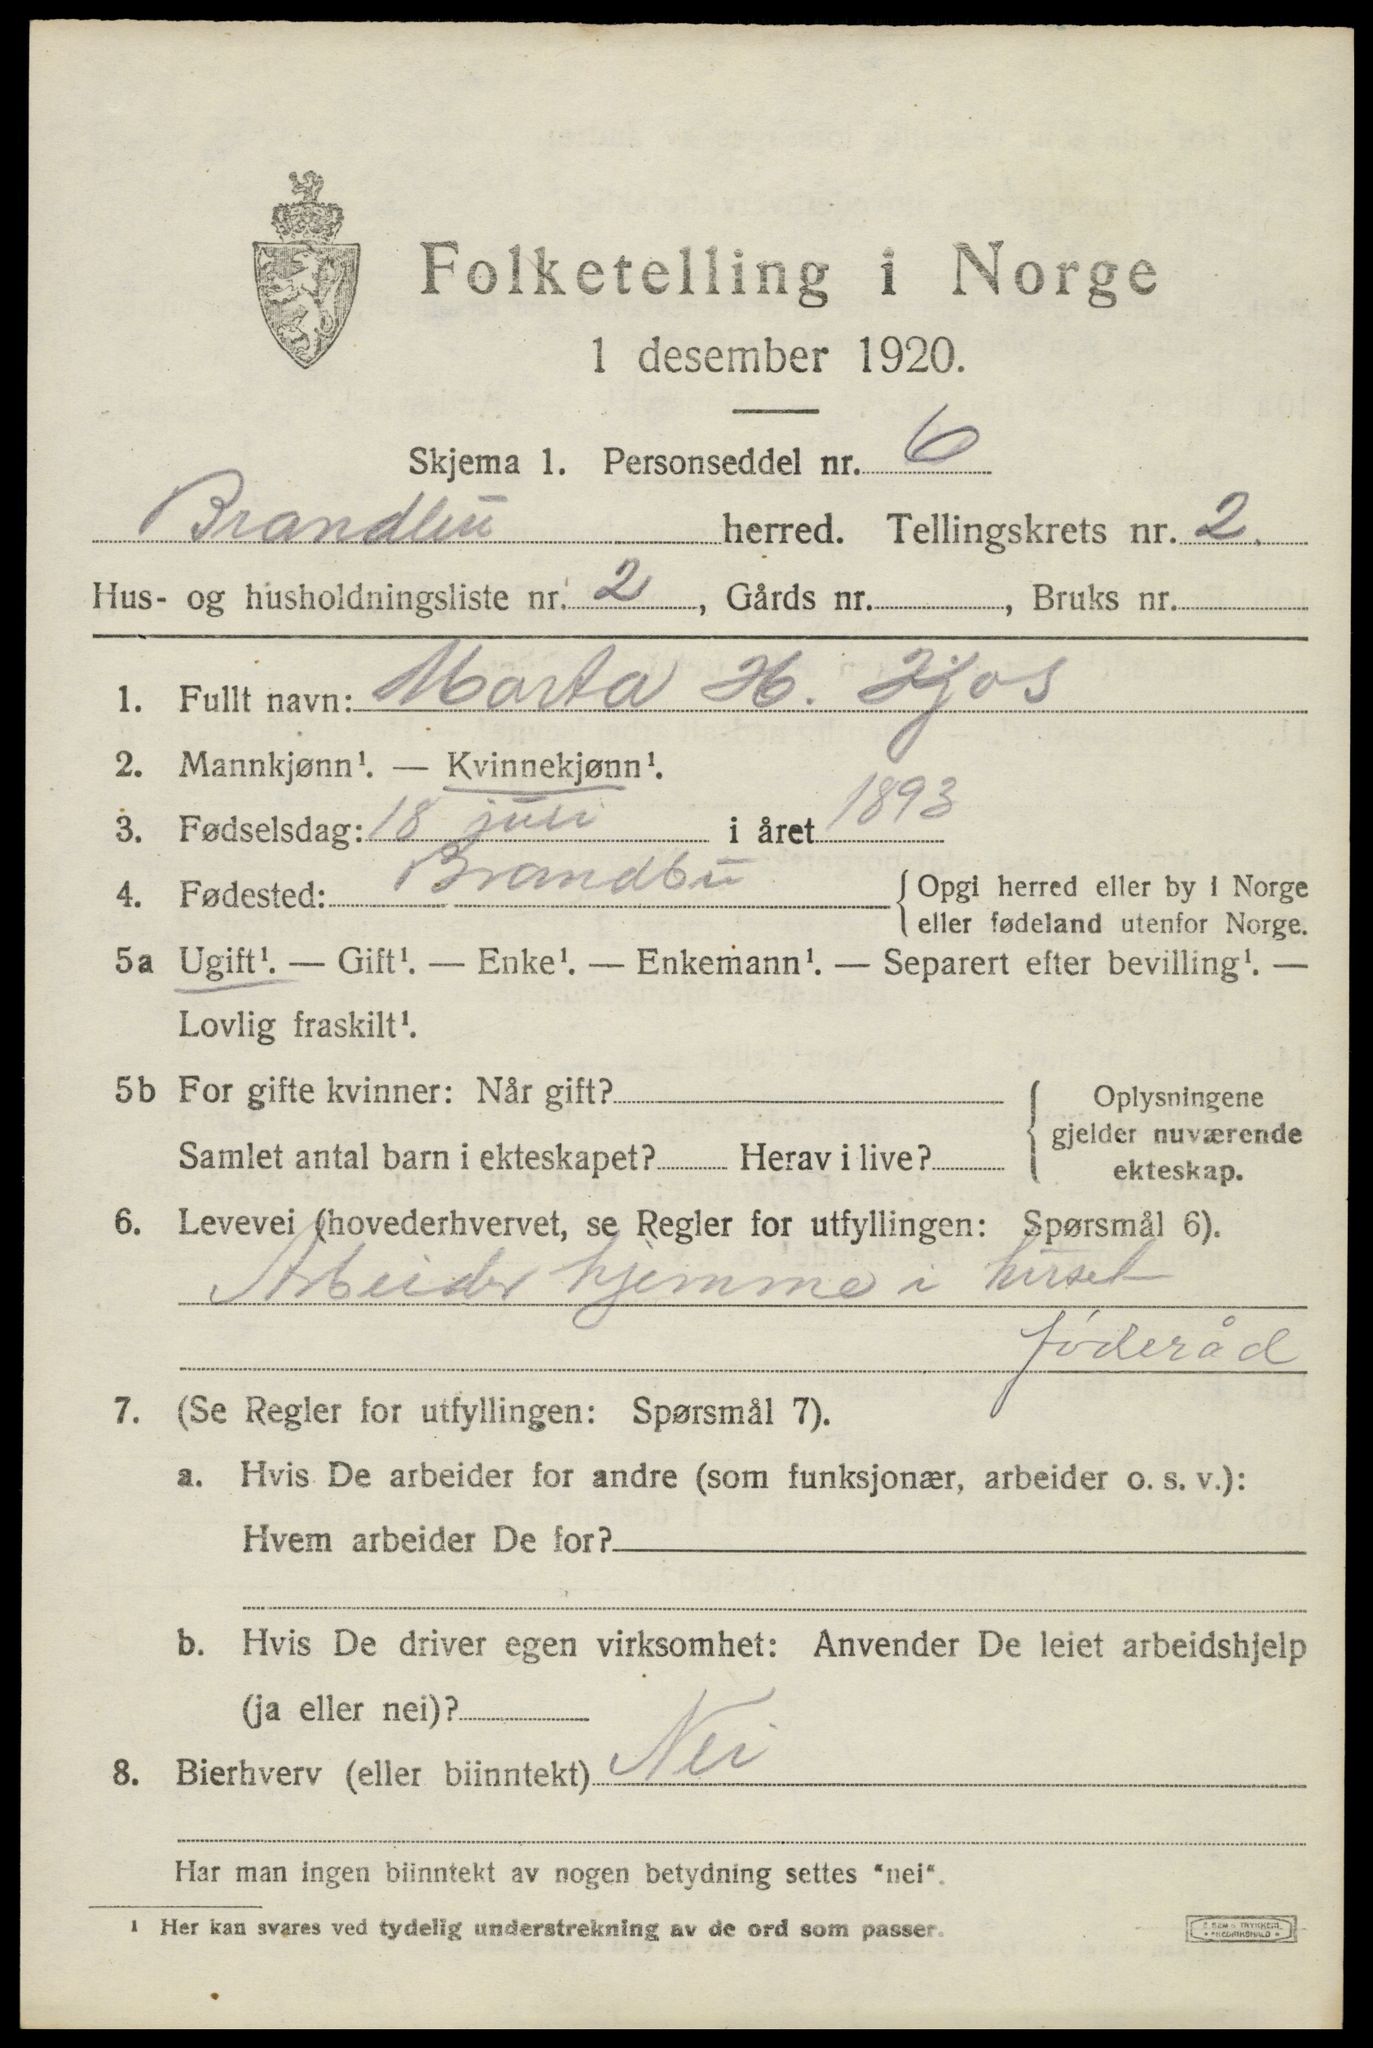 Folketelling i Norge
1 desember 1920.
Skjema 1. Personseddel nr. 6
Brandbu herred. Tellingskrets nr. 2.
Hus- og husholdningsliste nr. 2, Gårds nr. , Bruks nr.
1. Fullt navn: Marta H.
2. Mannkjønn¹. — Kvinnekjønn¹.
3. Fødselsdag: 18 juli i året 1893
4. Fødested: Brandbu {Opgi herred eller by i Norge
eller fødeland utenfor Norge.
5a Ugift¹. — Gift¹. — Enke¹. — Enkemann¹. — Separert efter bevilling¹. —
Lovlig fraskilt¹.
5b For gifte kvinner: Når gift? { Oplysningene
gjelder nuværende
Samlet antal barn i ekteskapet? Herav i live?
ekteskap.
6. Levevei (hovederhvervet, se Regler for utfyllingen: Spørsmål 6).
Arbeider hjemme i huset
føderåd
7. (Se Regler for utfyllingen: Spørsmål 7).
a. Hvis De arbeider for andre (som funksjonær, arbeider o. s. v.):
Hvem arbeider De for?
b. Hvis De driver egen virksomhet: Anvender De leiet arbeidshjelp
(ja eller nei)?
8. Bierhverv (eller biinntekt) Nei
Har man ingen biinntekt av nogen betydning settes "nei".
¹ Her kan svares ved tydelig understrekning av de ord som passer.